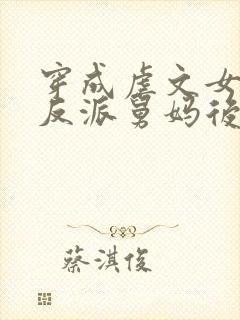 穿成虐文女
反派舅妈後
蔡淇俊